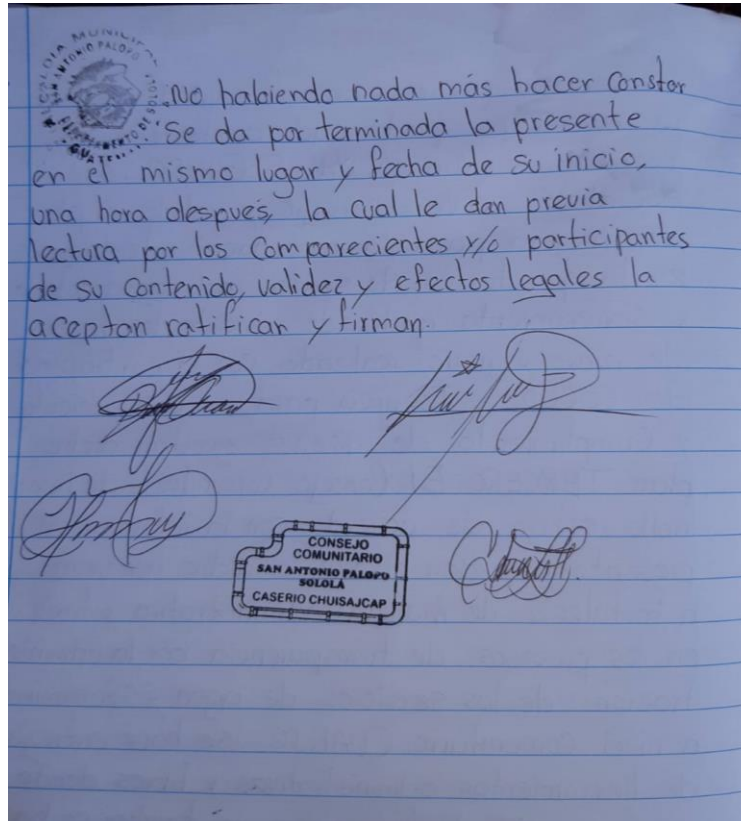 MUNICIPAL
SAN ANTONIO PALOPO
DEPARTAMENTO DE
No habiendo nada más hacer Constar
Se da por terminada la presente
en el mismo lugar y fecha de su inicio,
una hora despues, la cual le dan previa
lectura por los Comparecientes y/o participantes
de su Contenido, validez y efectos legales la
aceptan ratifican y firman.
CONSEJO
COMUNITARIO
SAN ANTONIO PALOPO
SOLOLÁ
CASERIO CHUISAJCAP